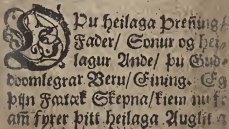 OPu heilaga Prenning/
Fader/ Sonur og hei-
lagur Ande/ þu Gud-
doomlegrar Veru/ Eining. Eg
þijn Fatæk Skepna/ kiem nu fr-
am fyrer þitt heilaga Auglit